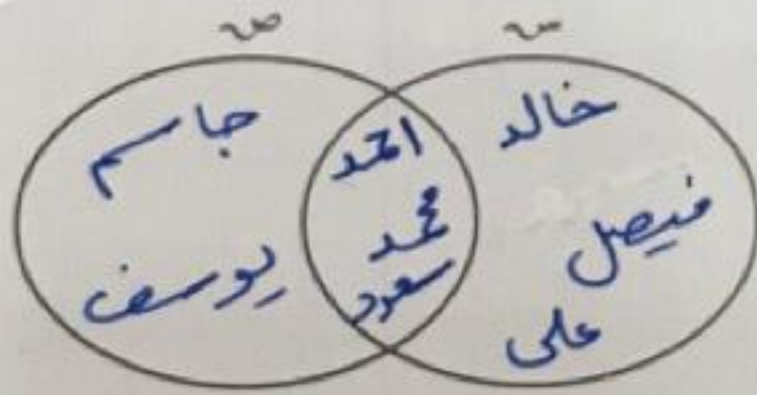 س
ص
خالد
فيصل
علي
احمد
محمد
سعود
جاسم
يوسف